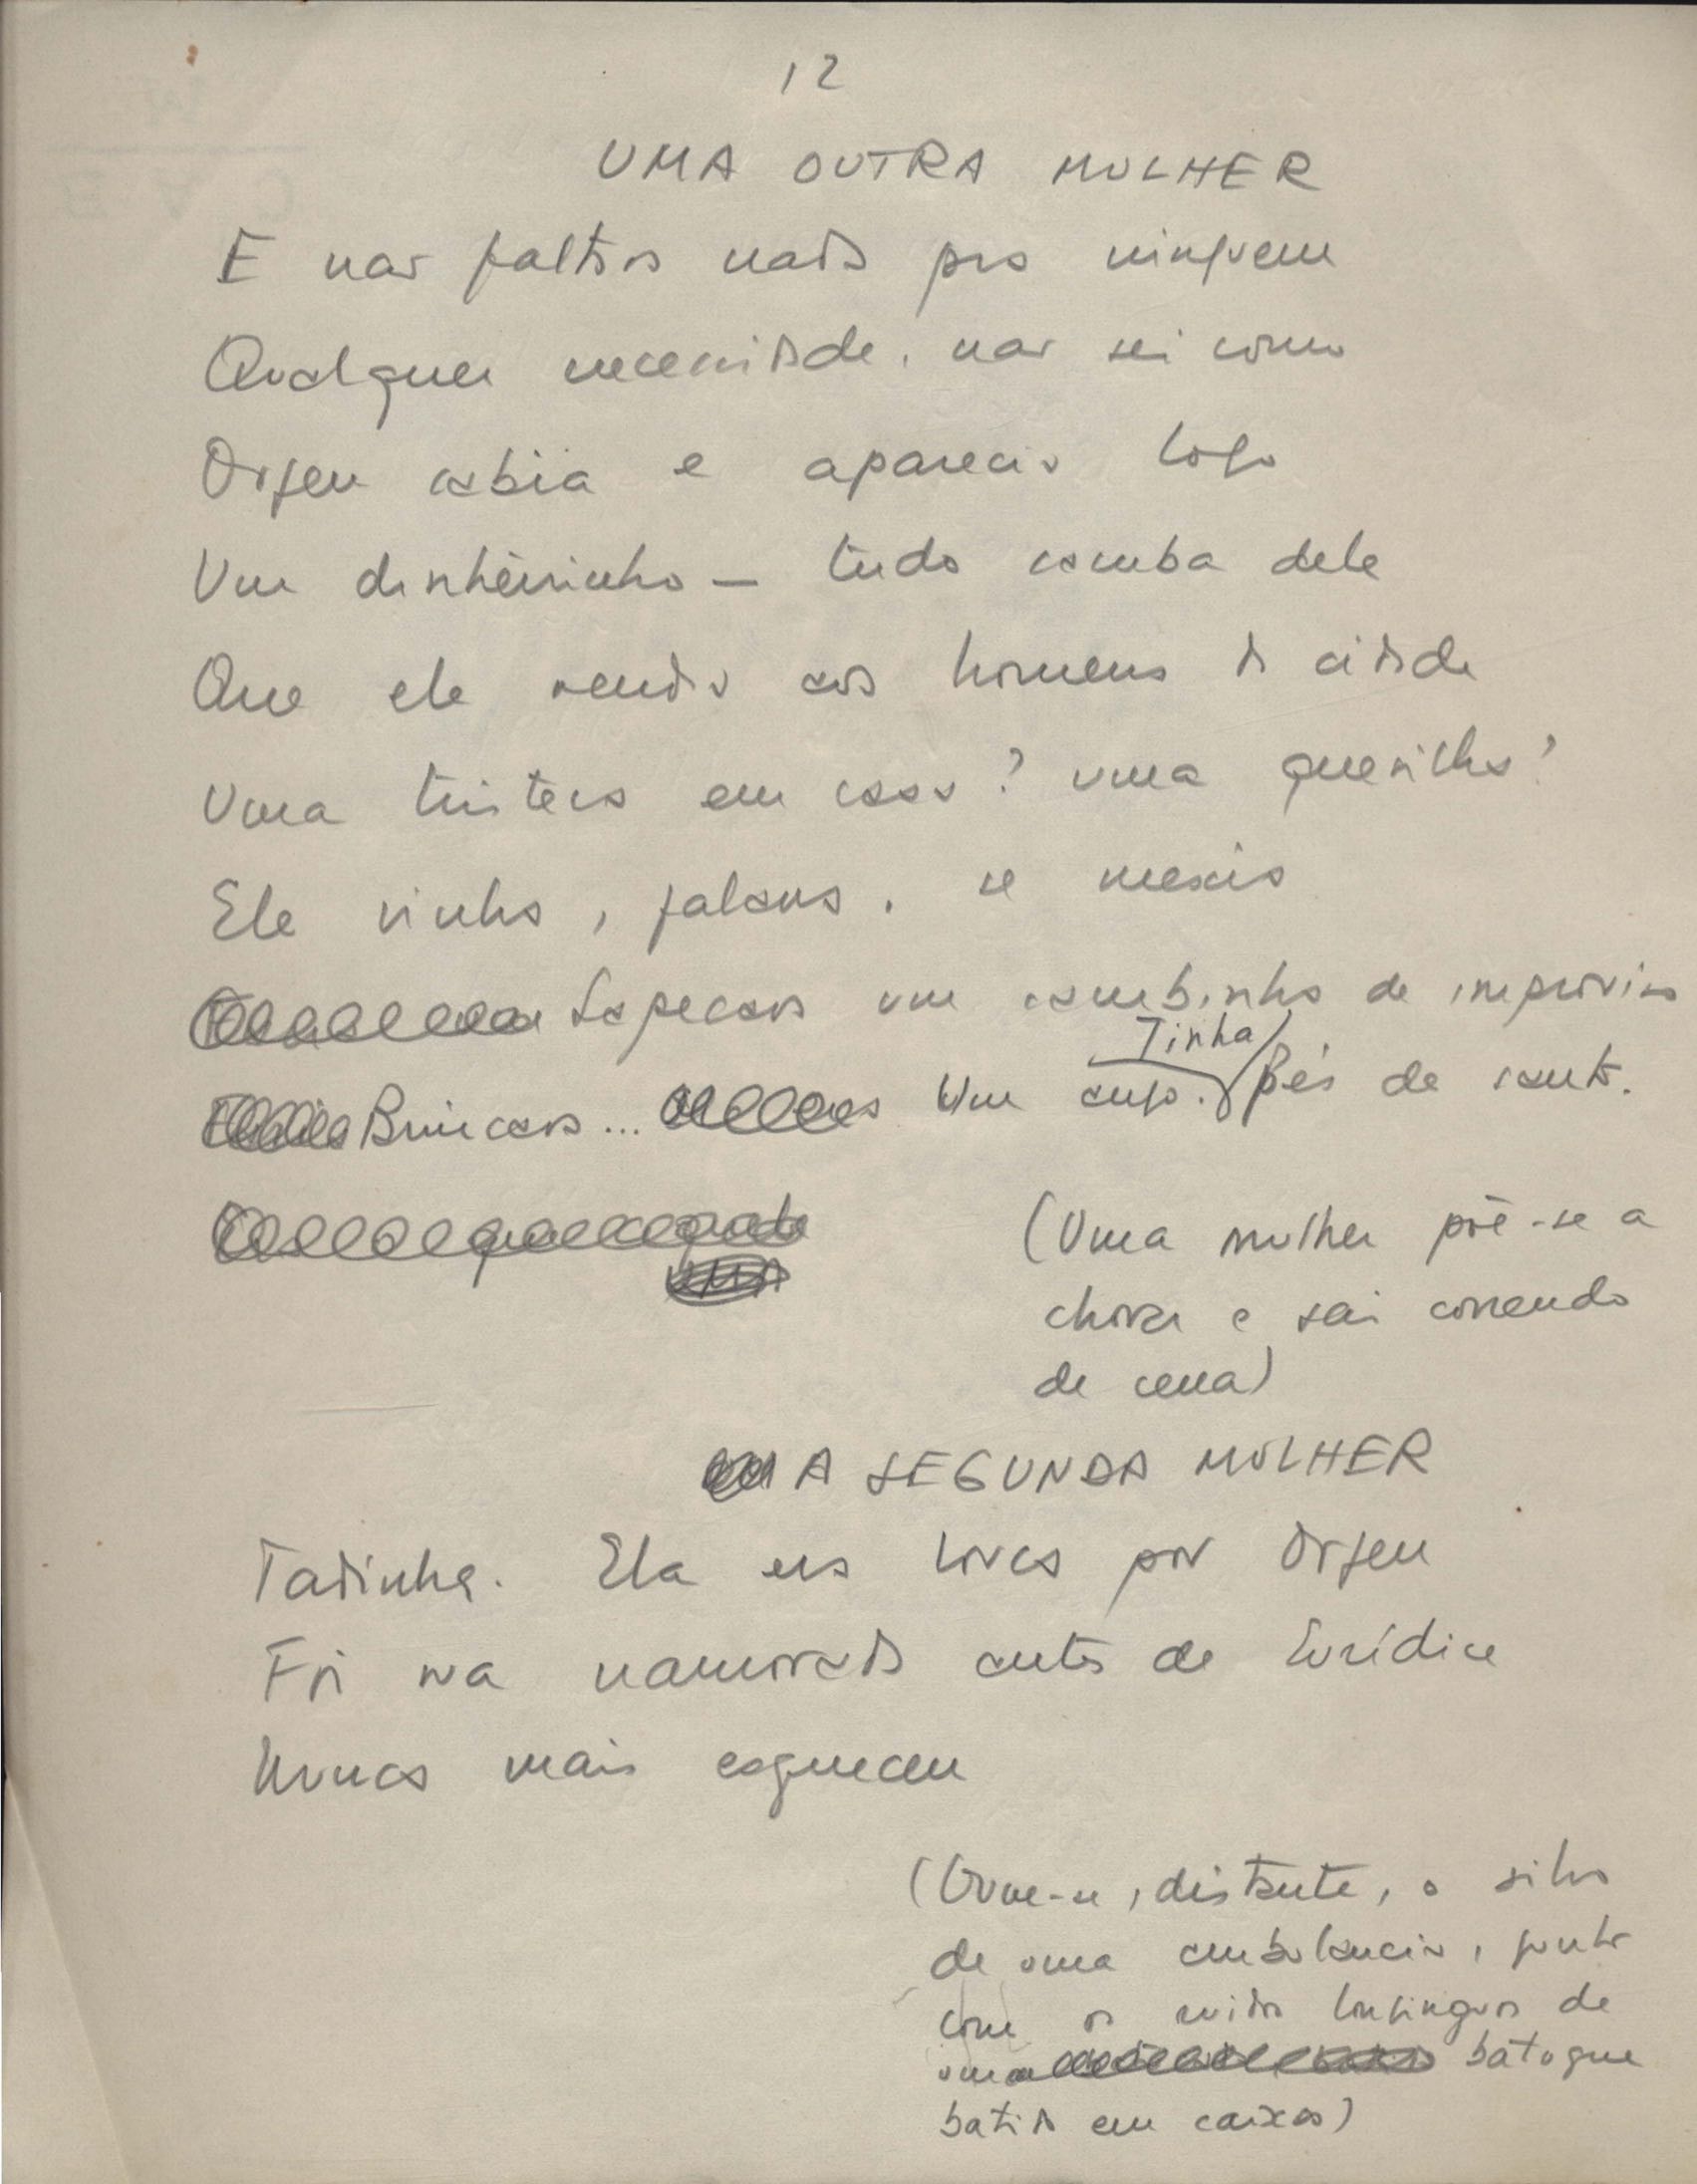 12
UMA OUTRA MULHER
E não faltava nada pra ninguem
Qualquer necessidade, não sei como
Orfeu sabia e aparecia logo
Um dinheirinho — tudo samba dele
Que ele vendia aos homens da cidade
Uma tristeza em casa? uma querilha?
Ele vinha, falava, se mexia
Sapecava um sambinha de improviso
Tinha
Brincava... Um anjo. Pés de santo.
(Uma mulher põe-se a
chorar e sai correndo
de cena)
A SEGUNDA MULHER
Tadinha. Ela era louca por Orfeu
Foi sua namorada antes de Eurídice
Nunca mais esqueceu
(Ouve-se, distante, o silvo
de uma ambulancia, junto
com os ruidos longinquos de
uma batuque
batido em caixas)